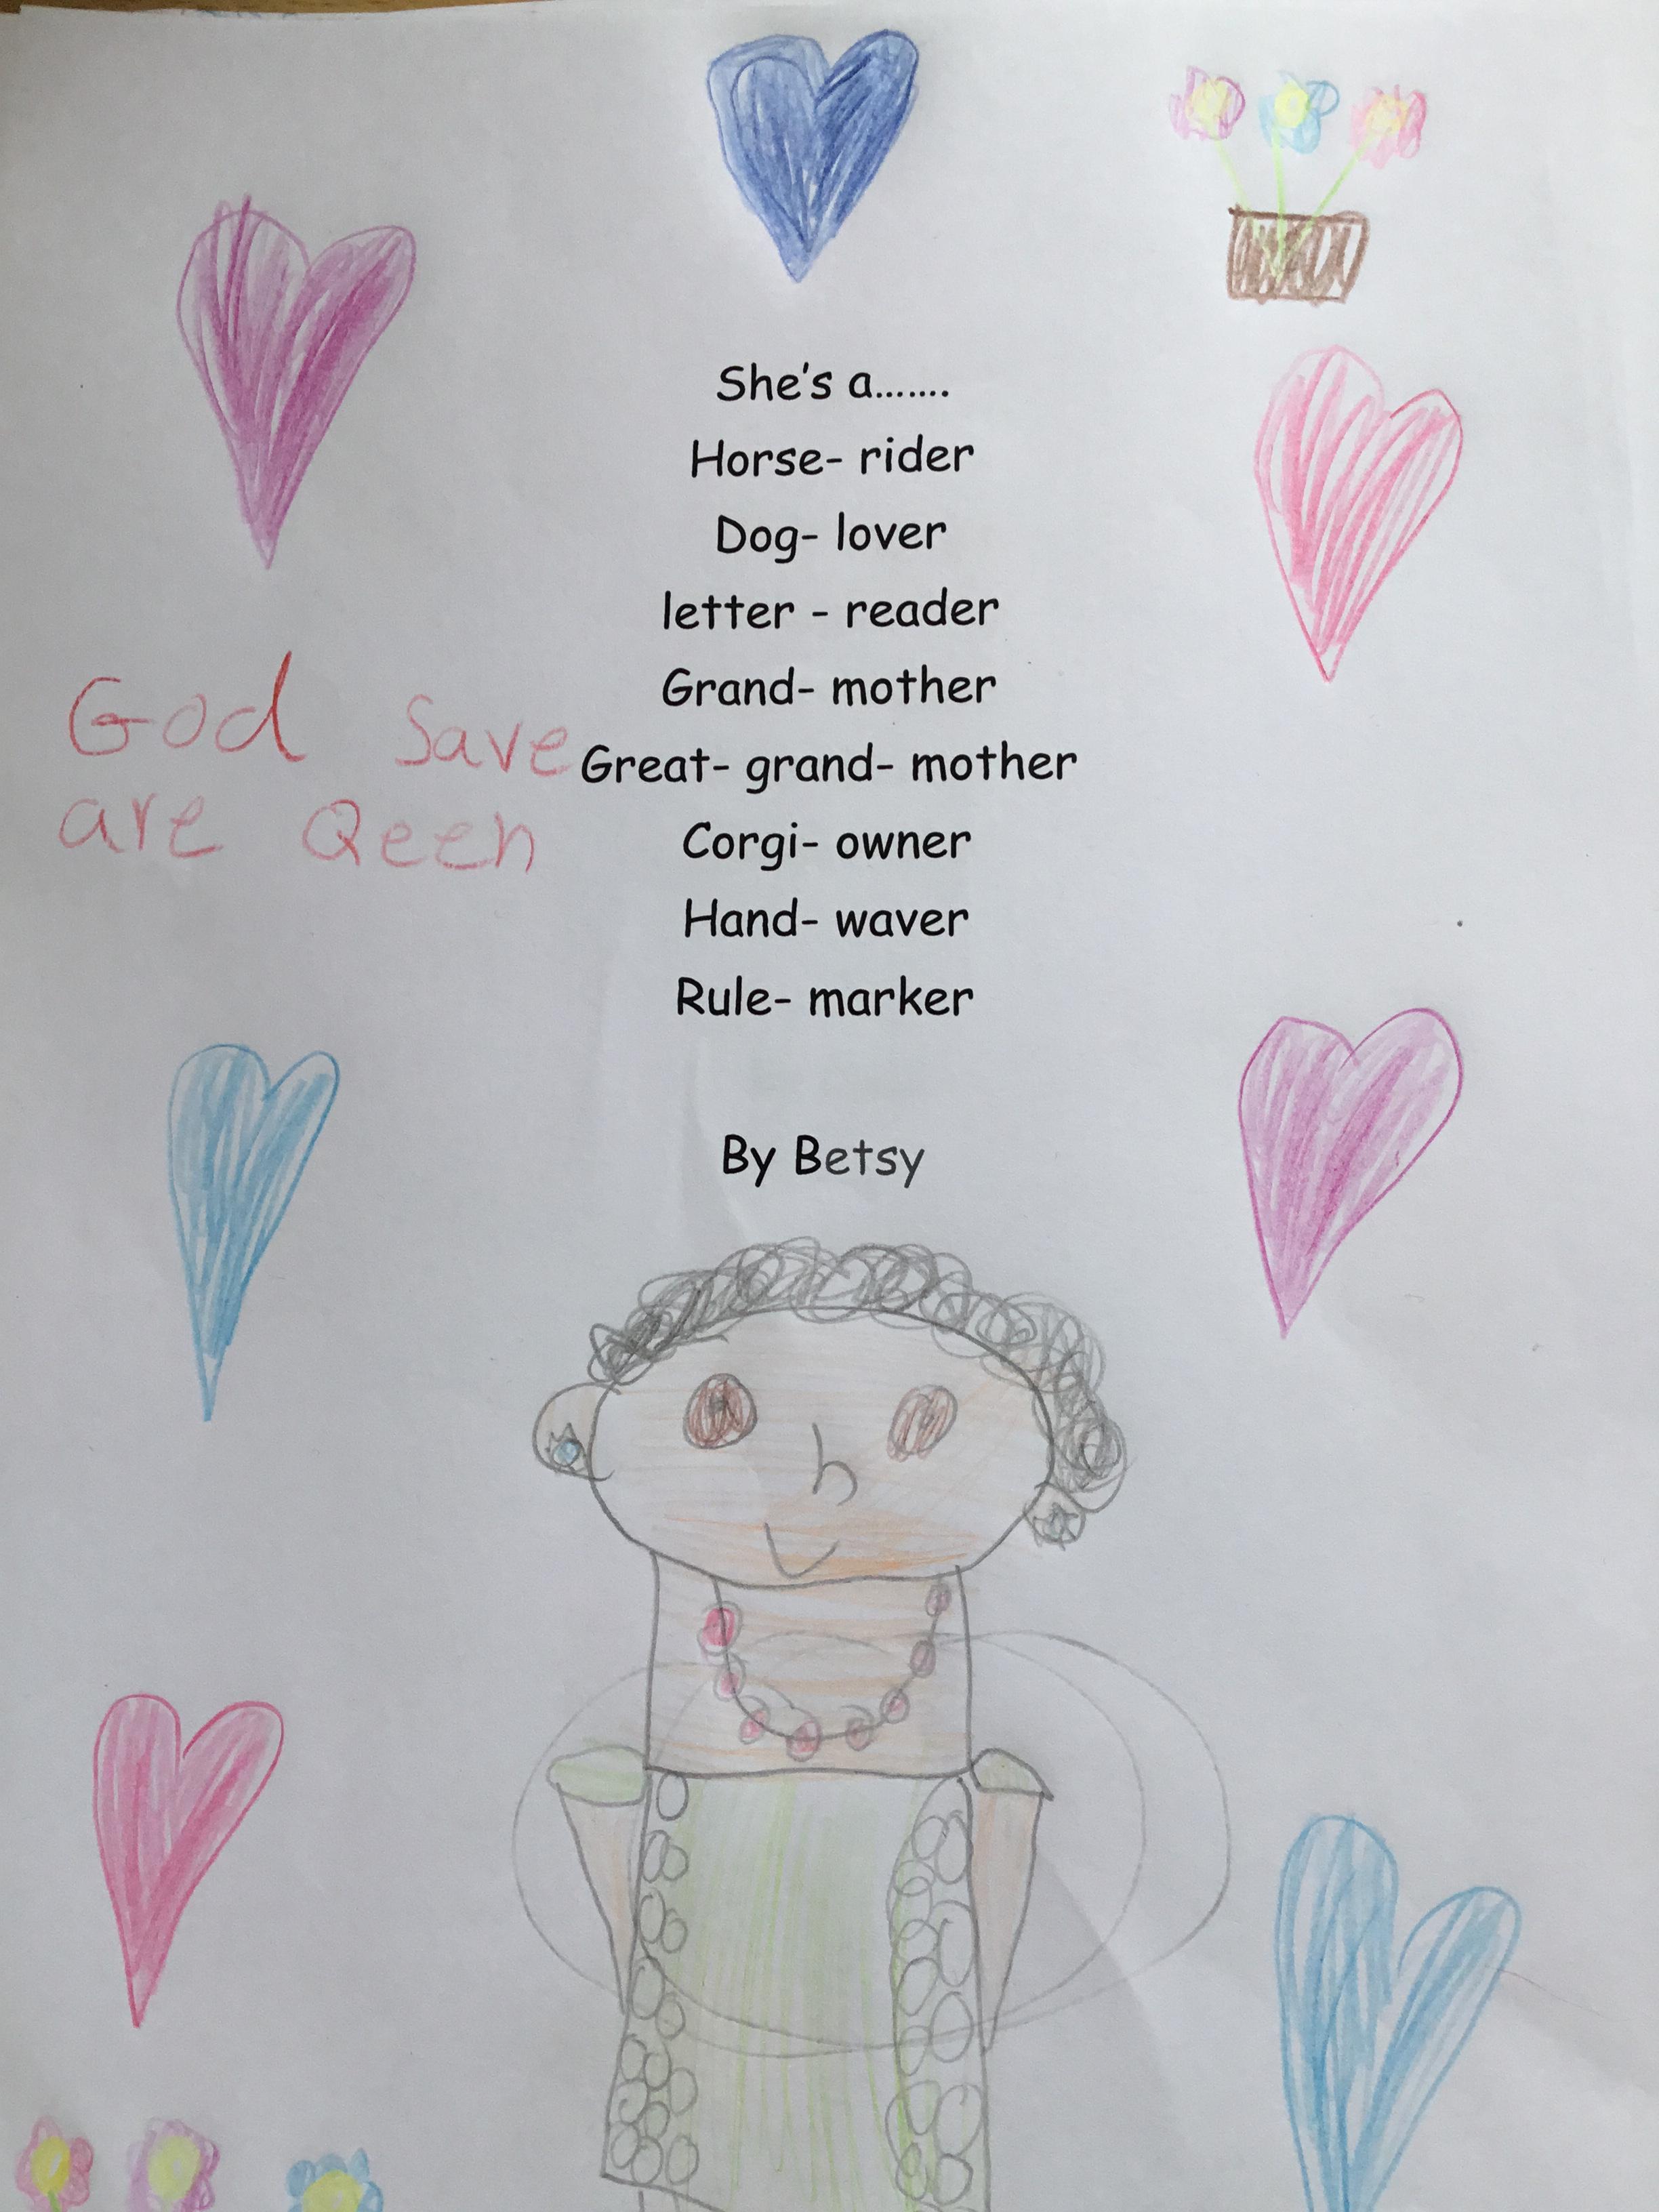 She's a.......
Horse- rider
Dog- lover
letter - reader
Grand- mother
God save
Great- grand- mother
are Qeen
Corgi- owner
Hand- waver
Rule- marker
By Betsy